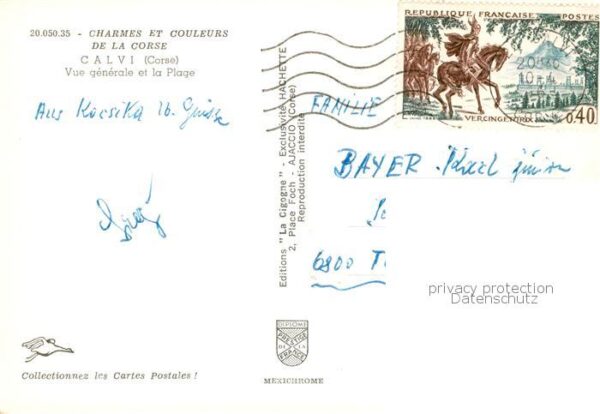 20.050.35 - CHARMES ET COULEURS
DE LA CORSE
CALVI (Corse)
Vue générale et la Plage
Aus Korsika lb. Grüsse
REPUBLIQUE FRANÇAISE POSTES
VERCINGETORIX
0,40
FAMILIE
BAYER Karl junior
6800
privacy protection
Datenschutz
Editions "La Cigogne" - Exclusivité HACHETTE
2, Place Foch - AJACCIO (Corse)
Reproduction interdite
DIPLOME
PRESTIGE
DE LA
FRANCE
MEXICHROME
Collectionnez les Cartes Postales !